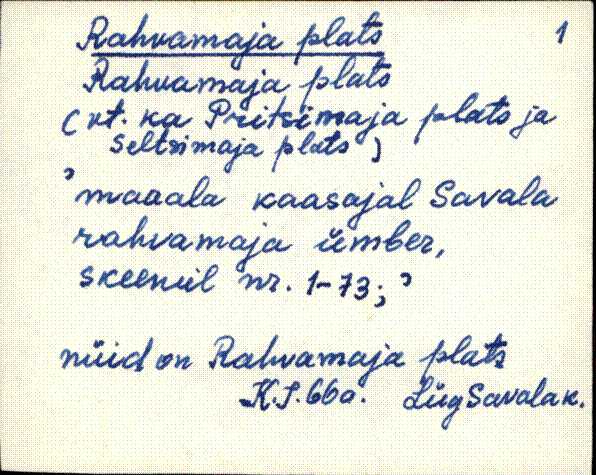 Rahvamaja plats 1
Rahvamaja plats
(vt. ka Pritsimaja plats ja
Seltsimaja plats)
'maaala kaasajal Savala
rahvamaja ümber,
skeemil nr. 1-73;'
nüüd on Rahvamaja plats
K.J. 66a. Lüg Savala k.